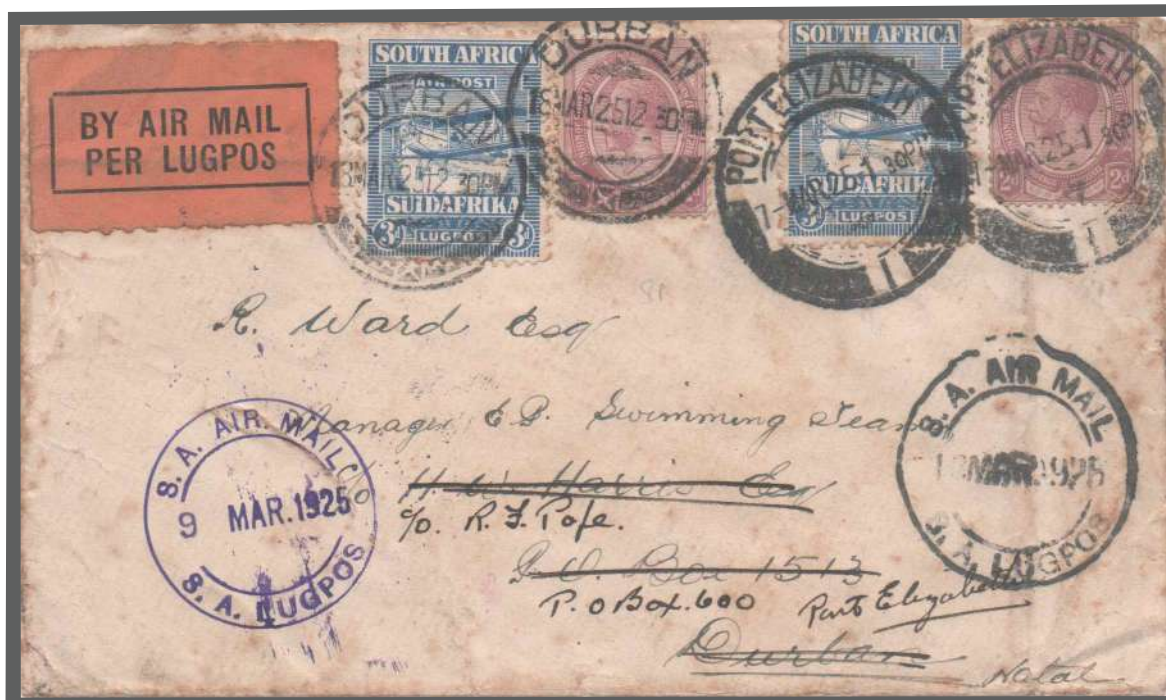 BY AIR MAIL
PER LUGPOS
SOUTH AFRICA
AIR POST
SUIDAFRIKA
3D 3D
LUGPOS
DURBAN
13 MAR 25 12 30PM
DURBAN
13 MAR 25 12 30PM
SOUTH AFRICA
POST
SUIDAFRIKA
3D
LUGPOS
PORT ELIZABETH
7-MAR 25-1 30PM
PORT ELIZABETH
MAR.25-1 30PM
2D 2D
R. Ward Esq
Manager E.P. Swimming Team
c/o H. W. Harris Esq
c/o. R. F. Pofe.
P.O. Box 1513
P.O Box.600 Port Elizabeth
Durban
Natal
S. A. AIR. MAIL
9 MAR.1925
S. A. LUGPOS
S. A. AIR MAIL
MAR.1925
S. A. LUGPOS